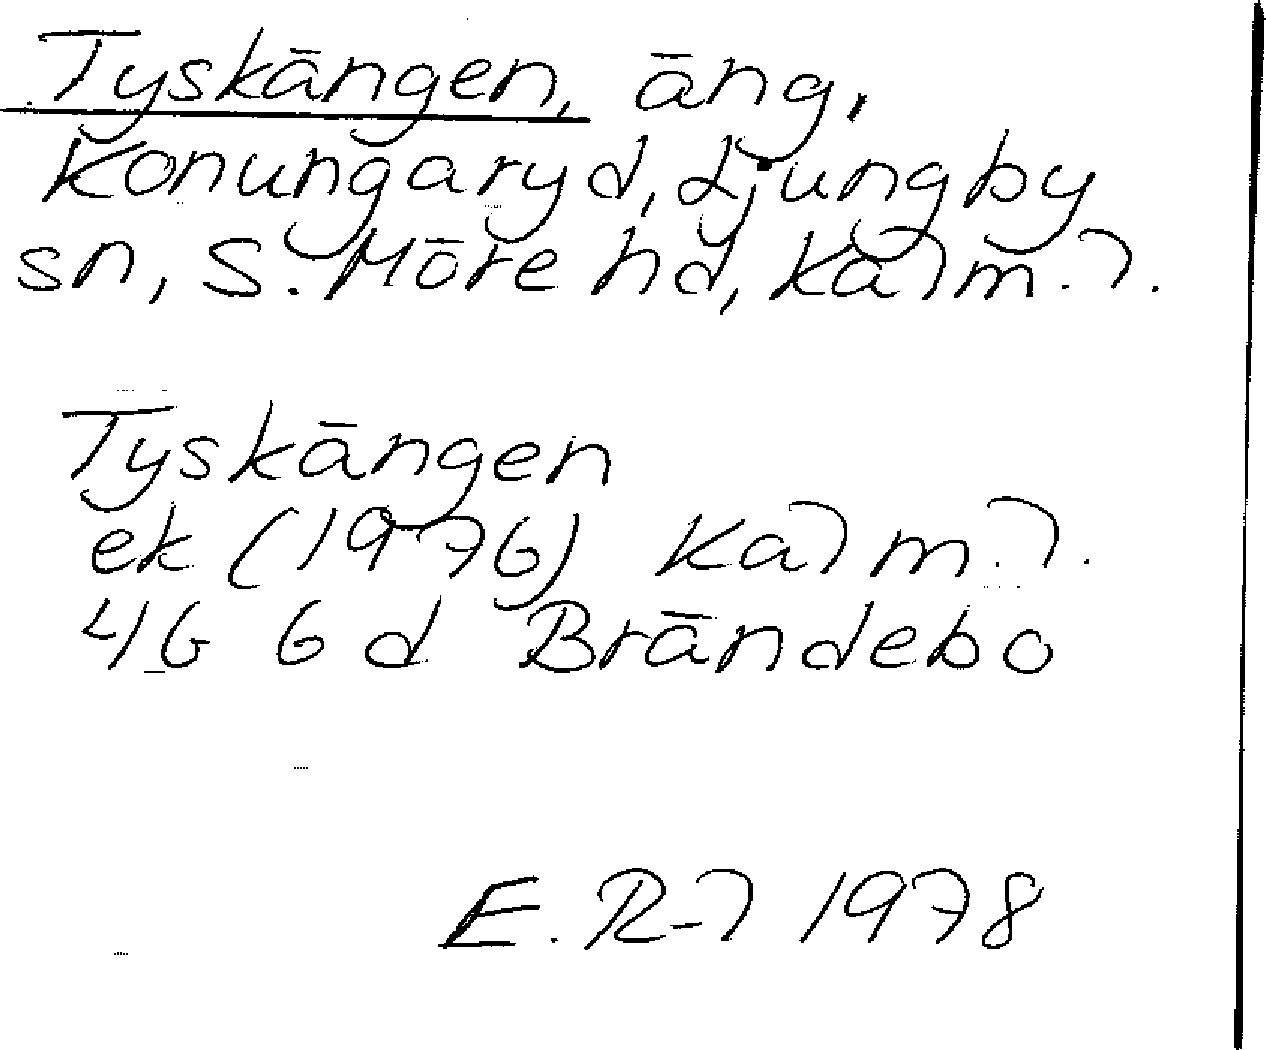 Tyskängen, äng,
Konungaryd, Ljungby
sn, S. Möre hd, Kalm. l.
Tyskängen
ek (1976) Kalm. l.
4G 6d Brändebo
E. R-l 1978